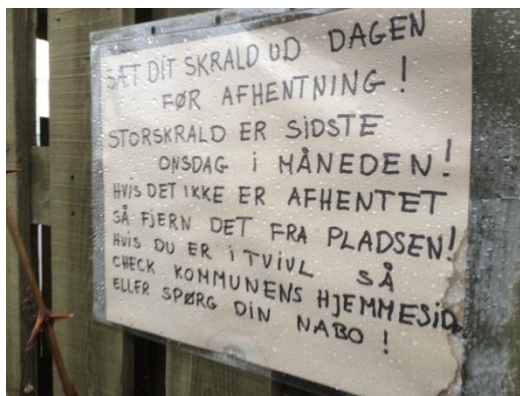 SÆT DIT SKRALD UD DAGEN
FØR AFHENTNING!
STORSKRALD ER SIDSTE
ONSDAG I MÅNEDEN!
HVIS DET IKKE ER AFHENTET
SÅ FJERN DET FRA PLADSEN!
HVIS DU ER I TVIVL SÅ
CHECK KOMMUNENS HJEMMESID
ELLER SPØRG DIN NABO!